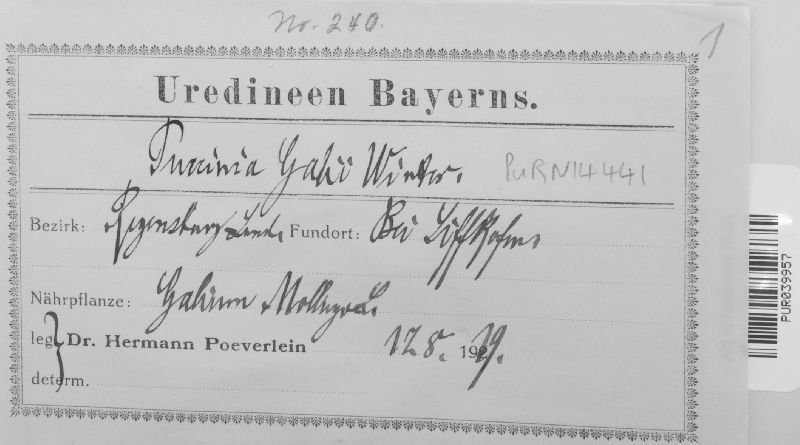 No. 240.
1
Uredineen Bayerns.
Puccinia Galii Winter. PURN14441
Bezirk: Regensburg-Land. Fundort: Bei
Nährpflanze: Galium Mollugo L.
leg. Dr. Hermann Poeverlein 12 8. 19.
determ.
PUR039957